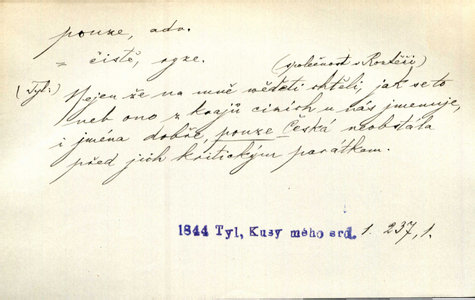 pouze, adv.
= čistě, ryze.
(společnost v Roztěži)
(Tyl:) Nejen že na mně věděti chtěli, jak se to
neb ono z krajů cizích u nás jmenuje,
i jména dobře, pouze česká neobstála
před jich kritickým parátkem.
1844 Tyl, Kusy mého srd. 1. 237,1.